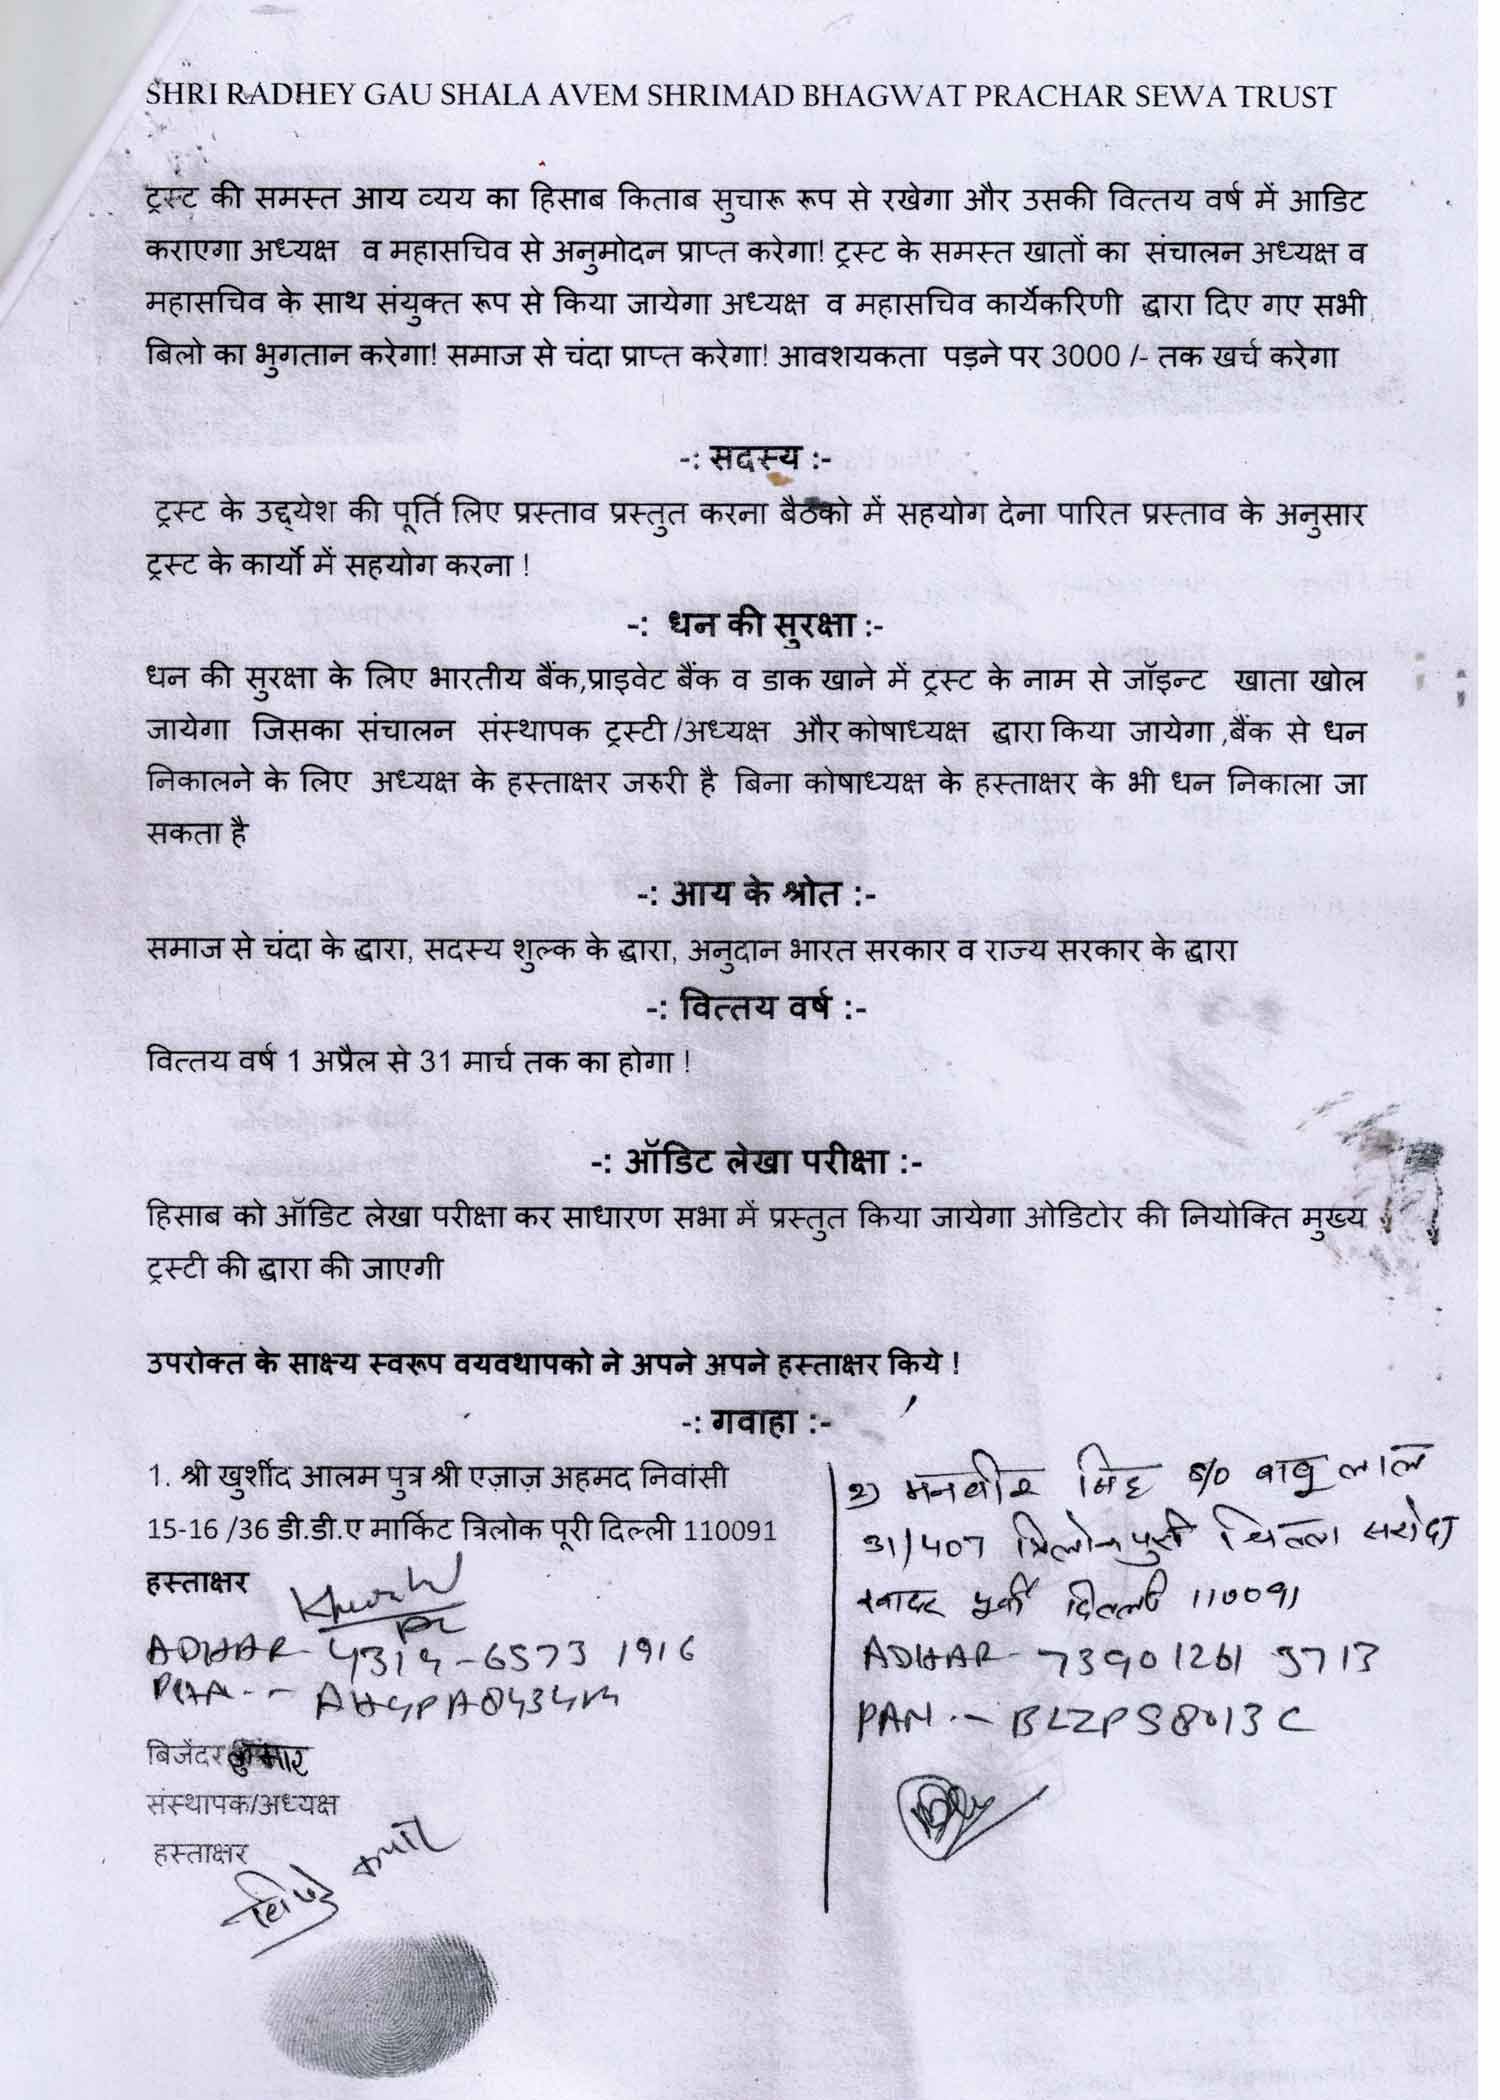 SHRI RADHEY GAU SHALA AVEM SHRIMAD BHAGWAT PRACHAR SEWA TRUST
ट्रस्ट की समस्त आय व्यय का हिसाब किताब सुचारू रूप से रखेगा और उसकी वित्तय वर्ष में आडिट
कराएगा अध्यक्ष व महासचिव से अनुमोदन प्राप्त करेगा! ट्रस्ट के समस्त खातों का संचालन अध्यक्ष व
महासचिव के साथ संयुक्त रूप से किया जायेगा अध्यक्ष व महासचिव कार्येकरिणी द्वारा दिए गए सभी
बिलो का भुगतान करेगा! समाज से चंदा प्राप्त करेगा! आवशयकता पड़ने पर 3000 /- तक खर्च करेगा
-: सदस्य :-
ट्रस्ट के उद्द्येश की पूर्ति लिए प्रस्ताव प्रस्तुत करना बैठको में सहयोग देना पारित प्रस्ताव के अनुसार
ट्रस्ट के कार्यो में सहयोग करना !
-: धन की सुरक्षा :-
धन की सुरक्षा के लिए भारतीय बैंक,प्राइवेट बैंक व डाक खाने में ट्रस्ट के नाम से जॉइन्ट खाता खोल
जायेगा जिसका संचालन संस्थापक ट्रस्टी /अध्यक्ष और कोषाध्यक्ष द्वारा किया जायेगा ,बैंक से धन
निकालने के लिए अध्यक्ष के हस्ताक्षर जरुरी है बिना कोषाध्यक्ष के हस्ताक्षर के भी धन निकाला जा
सकता है
-: आय के श्रोत :-
समाज से चंदा के द्वारा, सदस्य शुल्क के द्वारा, अनुदान भारत सरकार व राज्य सरकार के द्वारा
-: वित्तय वर्ष :-
वित्तय वर्ष 1 अप्रैल से 31 मार्च तक का होगा !
-: ऑडिट लेखा परीक्षा :-
हिसाब को ऑडिट लेखा परीक्षा कर साधारण सभा में प्रस्तुत किया जायेगा ओडिटोर की नियोक्ति मुख्य
ट्रस्टी की द्वारा की जाएगी
उपरोक्त के साक्ष्य स्वरूप वयवथापको ने अपने अपने हस्ताक्षर किये !
-: गवाहा :-
1. श्री खुर्शीद आलम पुत्र श्री एज़ाज़ अहमद निवासी
15-16 /36 डी.डी.ए मार्किट त्रिलोक पूरी दिल्ली 110091
हस्ताक्षर
ADHAR- 4314-6573 1916
PAN--
बिजेंदर कुमार
संस्थापक/अध्यक्ष
हस्ताक्षर
2) मनवीर सिंह S/O बाबू लाल
31/407 त्रिलोकपुरी चिल्ला सरोदा
खादर पूर्वी दिल्ली 110091
ADHAR- 73901261 3713
PAN.- BLZPS8013C